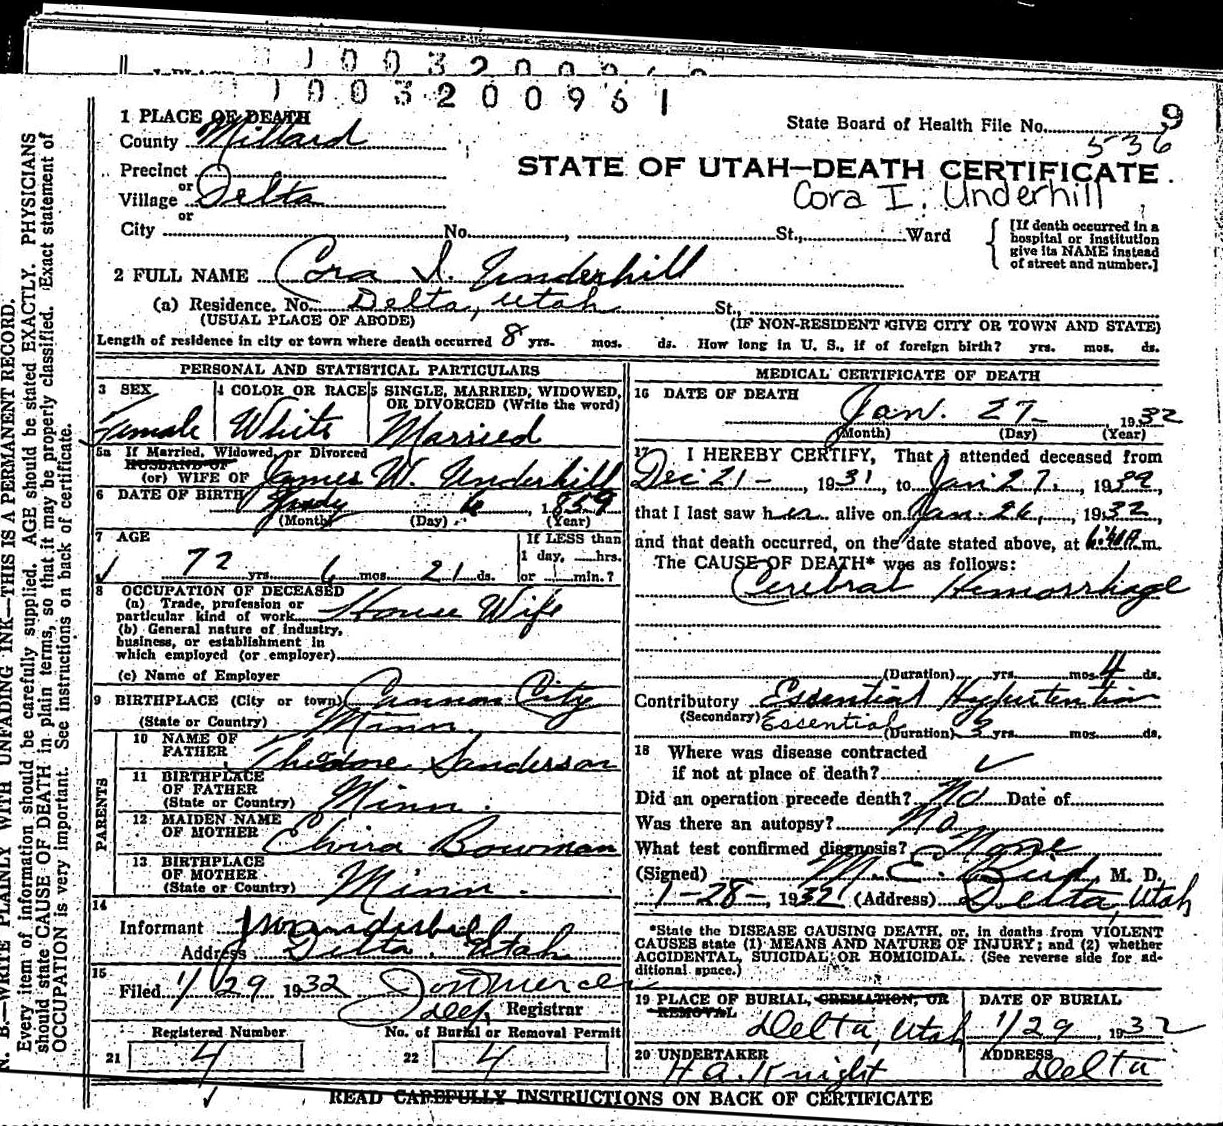 1003200961
1 PLACE OF DEATH
County Millard
State Board of Health File No. 9
536
Precinct
or
Village Delta
or
STATE OF UTAH—DEATH CERTIFICATE.
Cora I. Underhill
City No. , St., Ward
[If death occurred in a hospital or institution give its NAME instead of street and number.]
2 FULL NAME Cora I. Underhill
(a) Residence. No. Delta, Utah St.,
(USUAL PLACE OF ABODE) (IF NON-RESIDENT GIVE CITY OR TOWN AND STATE)
Length of residence in city or town where death occurred 8 yrs. mos. ds. How long in U. S., if of foreign birth? yrs. mos. ds.
PERSONAL AND STATISTICAL PARTICULARS
3 SEX
Female
4 COLOR OR RACE
White
5 SINGLE, MARRIED, WIDOWED,
OR DIVORCED (Write the word)
Married
5a If Married, Widowed, or Divorced
HUSBAND OF
(or) WIFE OF James W. Underhill
6 DATE OF BIRTH 6, 1859
(Month) (Day) (Year)
7 AGE
72 yrs. 6 mos. 21 ds.
If LESS than
1 day, hrs.
or min.?
8 OCCUPATION OF DECEASED
(a) Trade, profession or
particular kind of work House Wife
(b) General nature of industry,
business, or establishment in
which employed (or employer)
(c) Name of Employer
9 BIRTHPLACE (City or town) Cannon City
(State or Country) Minn.
PARENTS
10 NAME OF
FATHER Theodore Sanderson
11 BIRTHPLACE
OF FATHER
(State or Country) Minn.
12 MAIDEN NAME
OF MOTHER Elvira Bowman
13 BIRTHPLACE
OF MOTHER
(State or Country) Minn.
14
Informant J W Underhill
Address Delta, Utah
15
Filed 1/29 1932
Registrar
Registered Number
21 4
No. of Burial or Removal Permit
22 4
MEDICAL CERTIFICATE OF DEATH
16 DATE OF DEATH
Jan. 27 1932
(Month) (Day) (Year)
17 I HEREBY CERTIFY, That I attended deceased from
Dec 21-, 1931, to Jan 27, 1932,
that I last saw her alive on Jan. 26, 1932,
and that death occurred, on the date stated above, at m.
The CAUSE OF DEATH* was as follows:
Cerebral Hemorrhage
(Duration) yrs. mos. 4 ds.
Contributory Essential Hypertention
(Secondary) Essential (Duration) 3 yrs. mos. ds.
18 Where was disease contracted
if not at place of death?
Did an operation precede death? No Date of
Was there an autopsy? No
What test confirmed diagnosis? None
(Signed) M. E. Bird, M. D.
1-28-, 1932 (Address) Delta, Utah
*State the DISEASE CAUSING DEATH, or, in deaths from VIOLENT
CAUSES state (1) MEANS AND NATURE OF INJURY; and (2) whether
ACCIDENTAL, SUICIDAL OR HOMICIDAL. (See reverse side for ad-
ditional space.)
19 PLACE OF BURIAL, CREMATION, OR
REMOVAL
Delta, Utah
DATE OF BURIAL
1/29, 1932
20 UNDERTAKER
H A. Knight
ADDRESS
Delta
READ CAREFULLY INSTRUCTIONS ON BACK OF CERTIFICATE
N. B.—WRITE PLAINLY WITH UNFADING INK—THIS IS A PERMANENT RECORD.
Every item of information should be carefully supplied. AGE should be stated EXACTLY. PHYSICIANS
should state CAUSE OF DEATH in plain terms, so that it may be properly classified. Exact statement of
OCCUPATION is very important. See instructions on back of certificate.